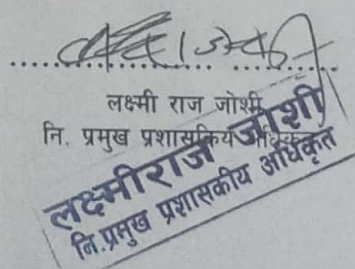 लक्ष्मी राज जोशी
नि. प्रमुख प्रशासकिय अधिकृत
लक्ष्मीराज जोशी
नि.प्रमुख प्रशासकीय अधिकृत